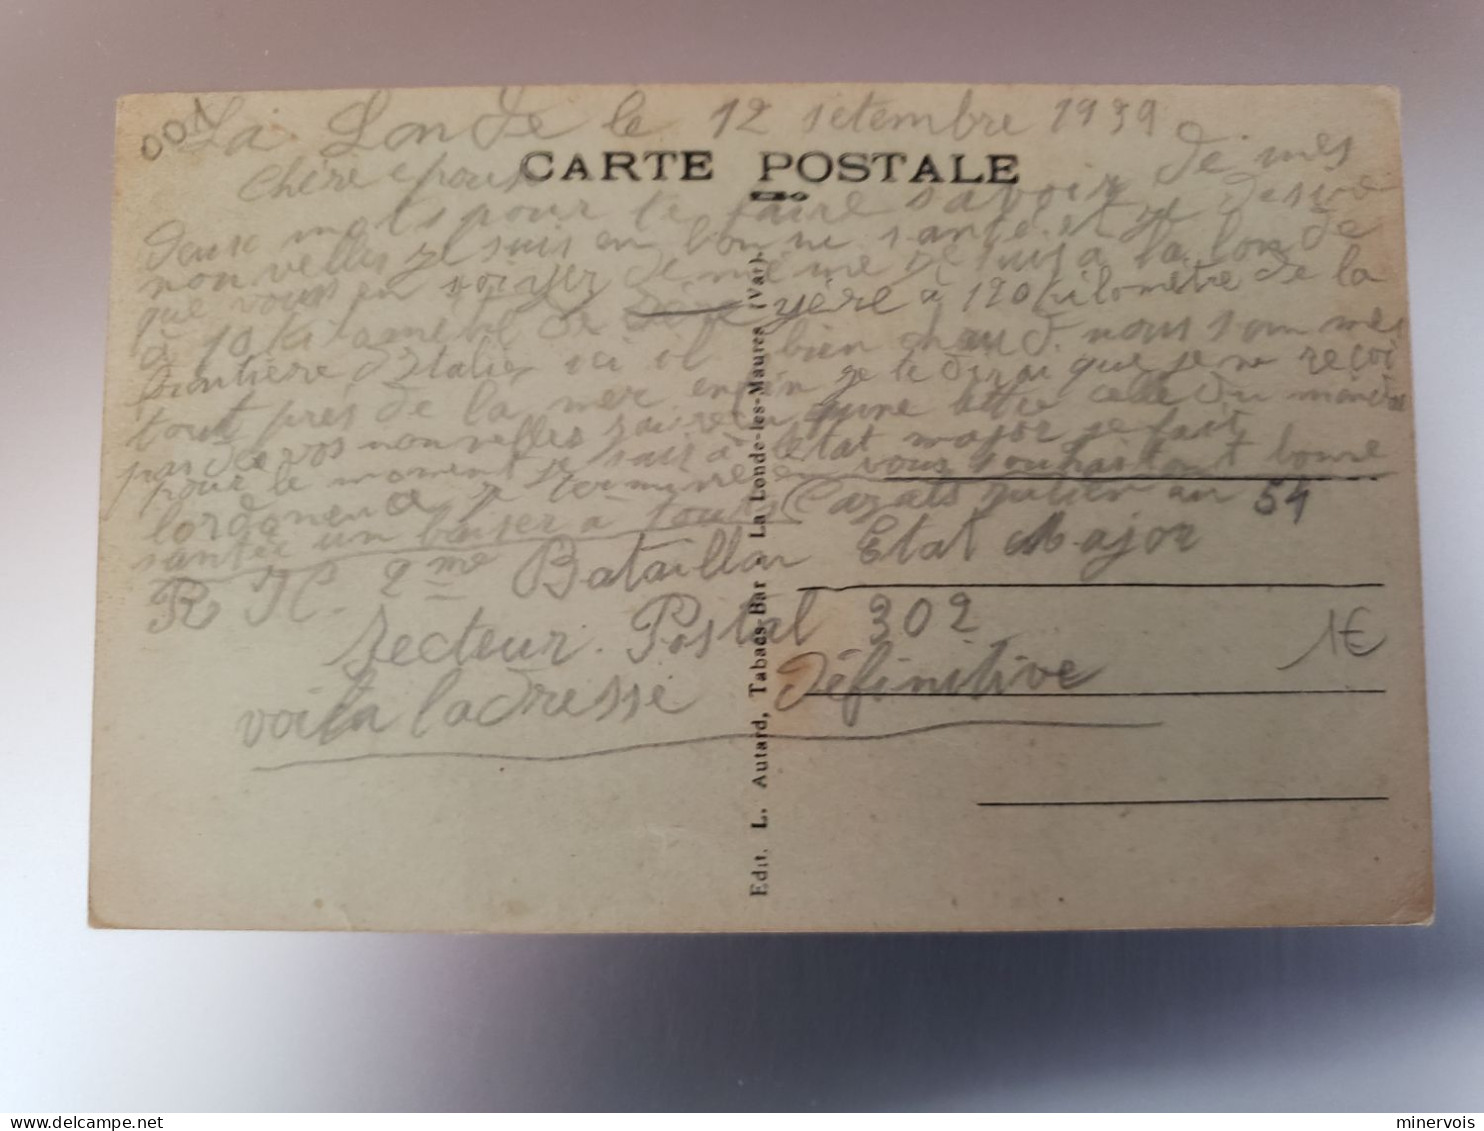 001
La Londe le 12 setembre 1939
CARTE POSTALE
chère epouse
deux mots pour te faire savoir de mes
nouvelles je suis en bonne sante et je desire
que vous en soyer de même je suis a la londe
à 10 kilametre de yère à 120 kilometre de la
frontière d'Italie ici il bien chaud. nous sommes
tout près de la mer enfin je te dirai que je ne reçoi
pas de vos nouvelles une lettre celle du
pour le moment je suis à l'etat major je fait
lordonence je termine en vous souhaitant bonne
santée un baiser a tous Cazals Julien au 54
R I C. 2me Bataillon Etat Major
secteur. Postal 302
voila ladresse définitive
1€
Edit. L. Autard, Tabacs-Bar - La Londe-les-Maures (Var).
minervois